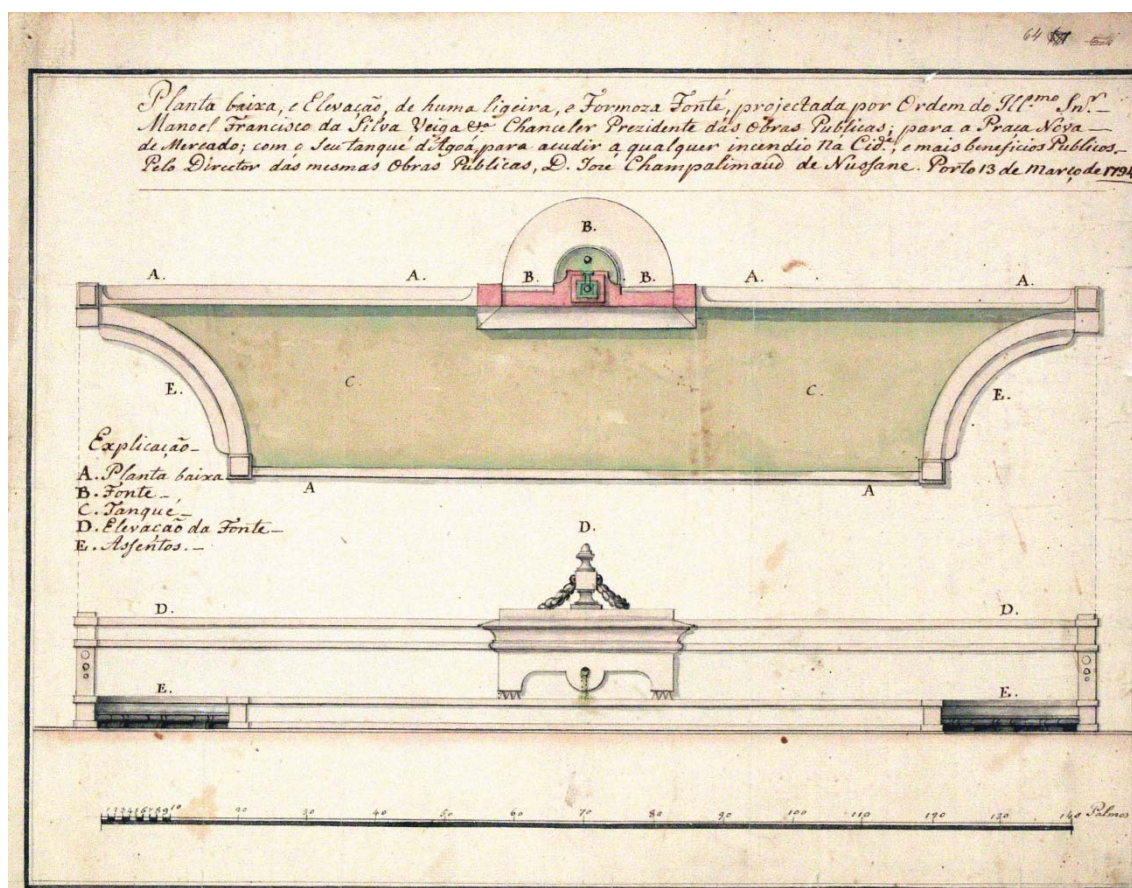 64
Planta baixa, e Elevação, de huma ligeira, e Formoza Fonte, projectada por Ordem do Ill.mo Sn.r
Manoel Francisco da Silva Veiga &.a Chanceler Prezidente das Obras Publicas; para a Praça Nova
de Mercado; com o Seu Tanque d'Agoa, para acudir a qualquer incendio na Cid.e, e mais beneficios Publicos.
Pelo Director das mesmas Obras Publicas, D. Jozé Champalimaud de Nussane. Porto 13 de Março de 1794
B.
A. A. B. B. A. A.
E. C. C. E.
Explicação
A. Planta baixa
B. Fonte
C. Tanque
D. Elevação da Fonte
E. Assentos.
A A
D.
D. D.
E. E.
1 2 3 4 5 6 7 8 9 10 20 30 40 50 60 70 80 90 100 110 120 130 140 Palmos